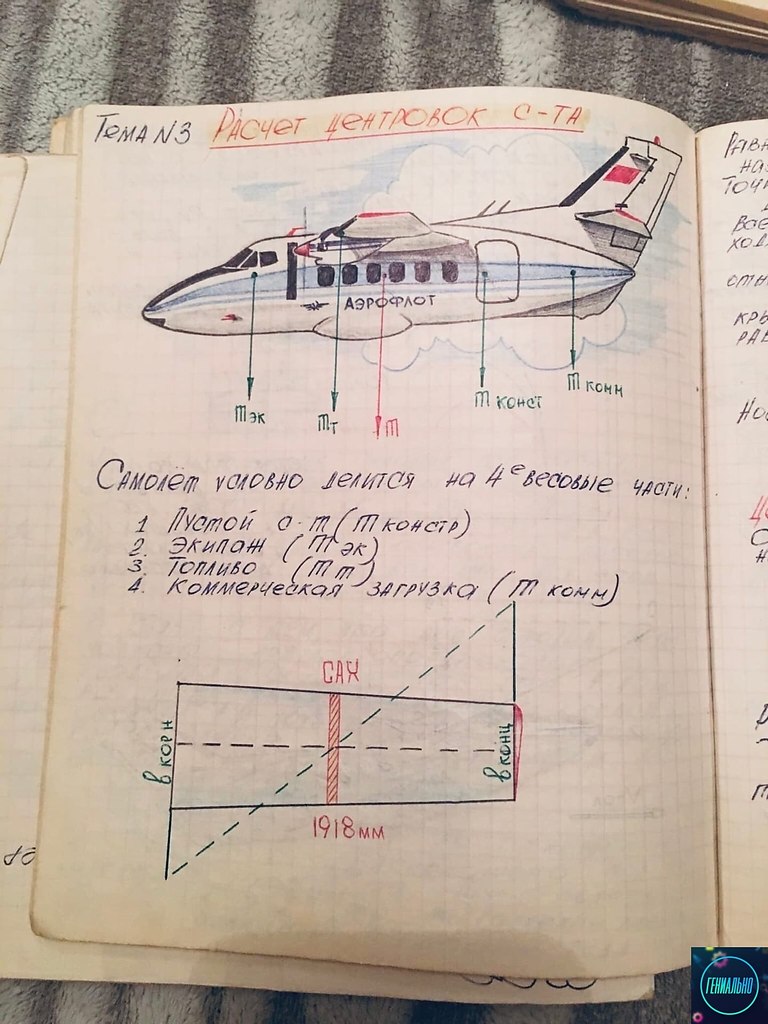 Тема N3 Расчет центровок с-та
АЭРОФЛОТ
m эк
m т
m
m конст
m комм
Самолёт условно делится на 4е весовые части:
1 Пустой с-т (m констр)
2. Экипаж (m эк)
3 Топливо (m т)
4. Коммерческая загрузка (m комм)
САХ
в корн
в конц
1918 мм
ГЕНИАЛЬНО